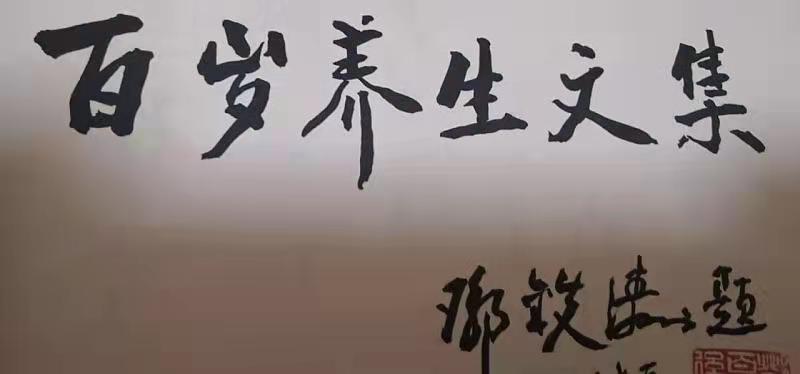 百岁养生文集
邓铁涛题